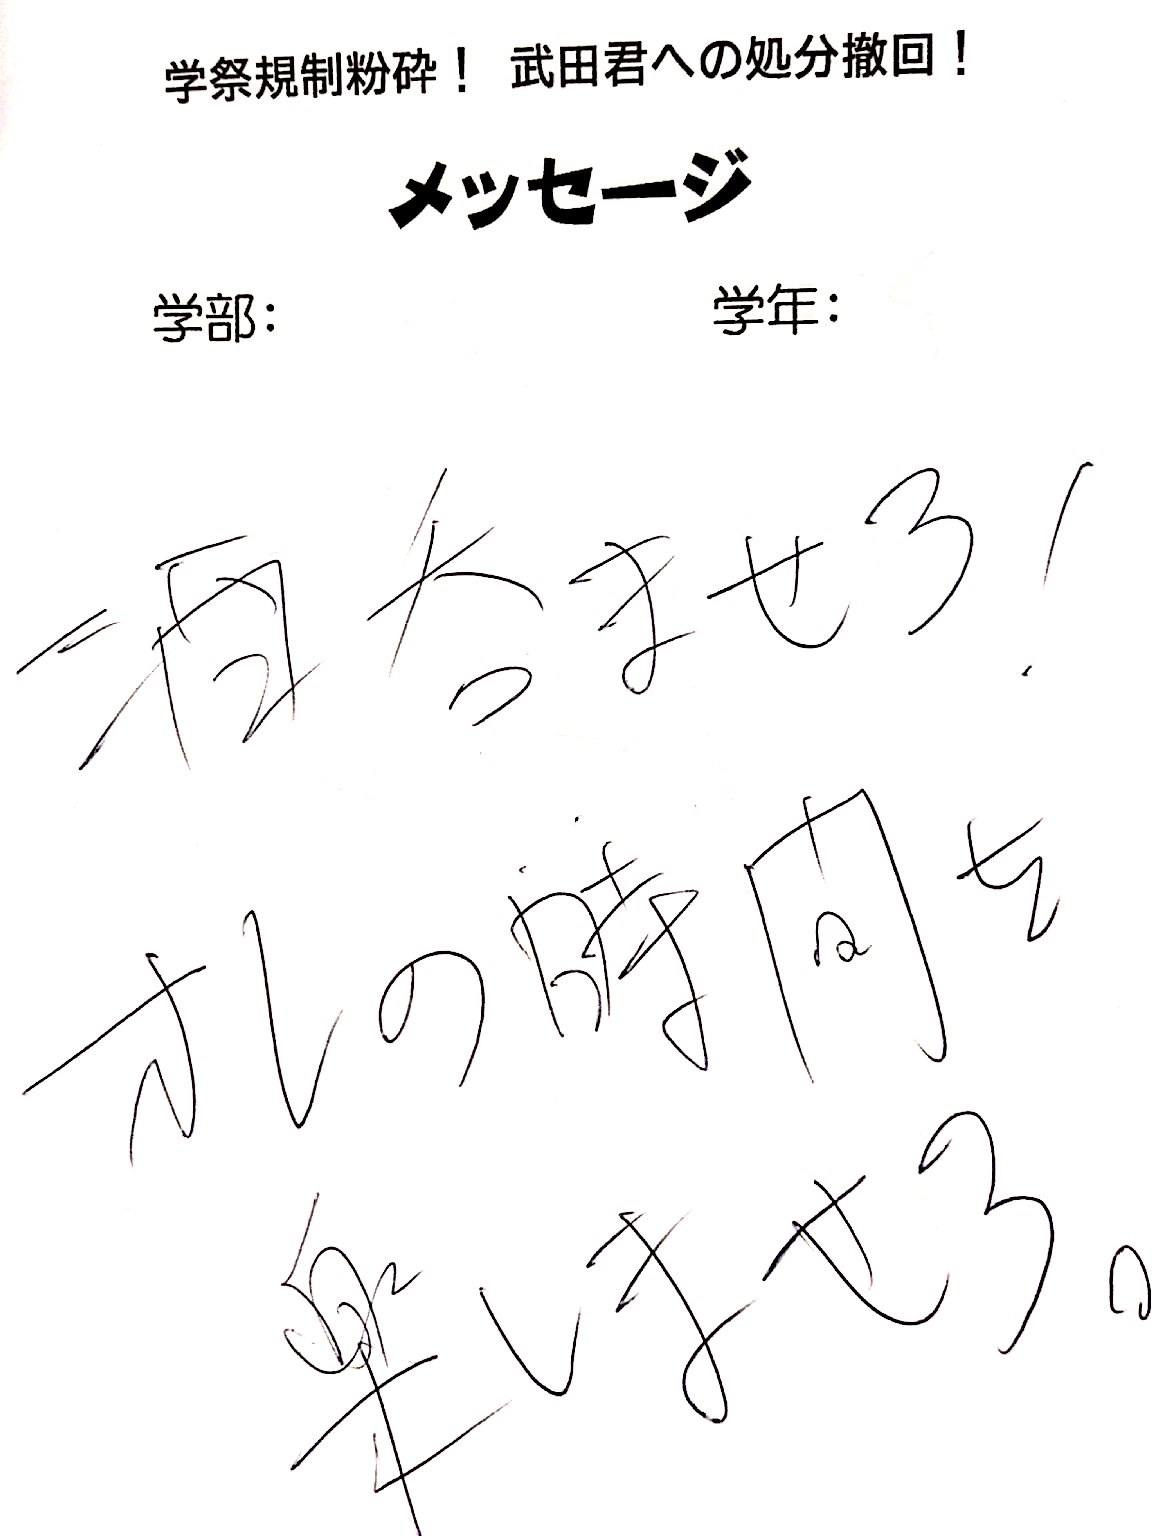 学祭規制粉砕！ 武田君への処分撤回！
メッセージ
学部： 学年：
酒呑ませろ！
オレの時間を
楽しませろ。